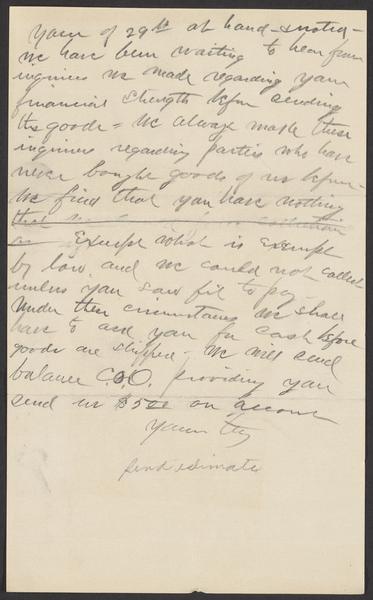 Yours of 29th at hand & noted -
We have been waiting to hear from
inquiries we made regarding your
financial strength before sending
the goods - We always make these
inquiries regarding parties who have
never bought goods of us before -
We find that you have nothing
that
Except what is exempt
by law and we could not collect
unless you saw fit to pay -
Under these circumstances we shall
have to ask you for cash before
goods are shipped - We will send
balance C.O.D. providing you
send us $500 on account
Yours try
Send estimate